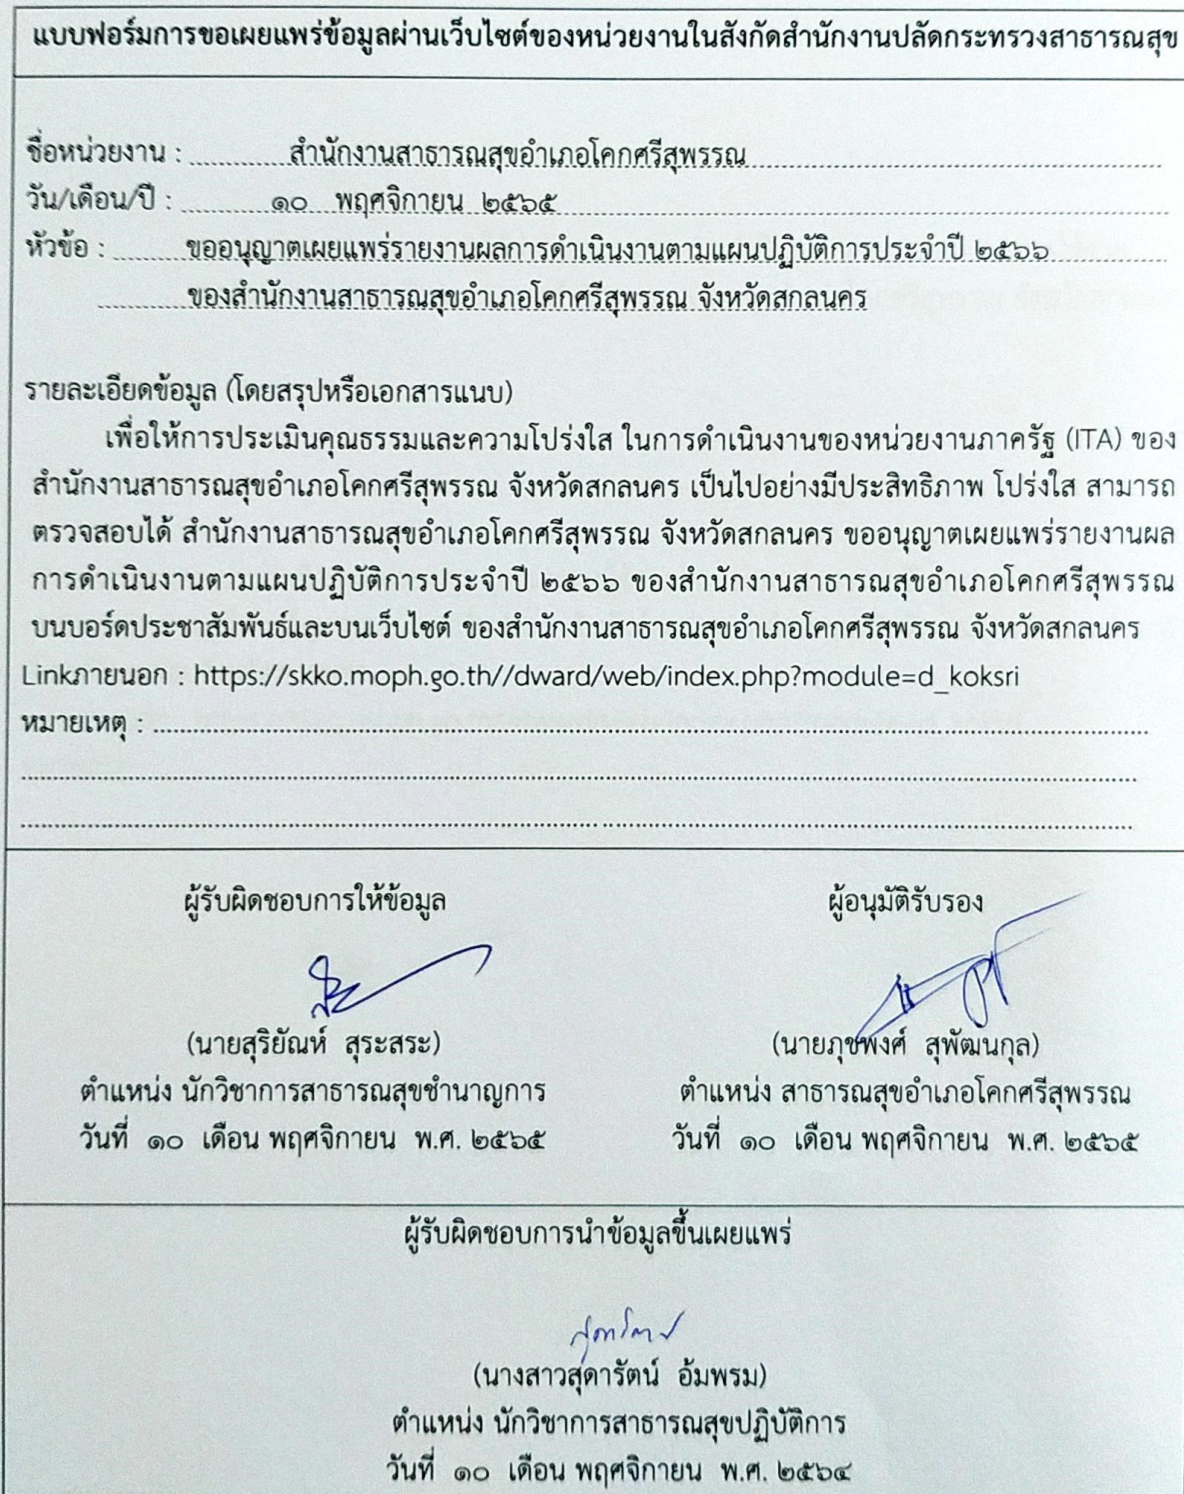 แบบฟอร์มการขอเผยแพร่ข้อมูลผ่านเว็บไซต์ของหน่วยงานในสังกัดสำนักงานปลัดกระทรวงสาธารณสุข
ชื่อหน่วยงาน : สำนักงานสาธารณสุขอำเภอโคกศรีสุพรรณ
วัน/เดือน/ปี : ๑๐ พฤศจิกายน ๒๕๖๕
หัวข้อ : ขออนุญาตเผยแพร่รายงานผลการดำเนินงานตามแผนปฏิบัติการประจำปี ๒๕๖๖
ของสำนักงานสาธารณสุขอำเภอโคกศรีสุพรรณ จังหวัดสกลนคร
รายละเอียดข้อมูล (โดยสรุปหรือเอกสารแนบ)
เพื่อให้การประเมินคุณธรรมและความโปร่งใส ในการดำเนินงานของหน่วยงานภาครัฐ (ITA) ของ
สำนักงานสาธารณสุขอำเภอโคกศรีสุพรรณ จังหวัดสกลนคร เป็นไปอย่างมีประสิทธิภาพ โปร่งใส สามารถ
ตรวจสอบได้ สำนักงานสาธารณสุขอำเภอโคกศรีสุพรรณ จังหวัดสกลนคร ขออนุญาตเผยแพร่รายงานผล
การดำเนินงานตามแผนปฏิบัติการประจำปี ๒๕๖๖ ของสำนักงานสาธารณสุขอำเภอโคกศรีสุพรรณ
บนบอร์ดประชาสัมพันธ์และบนเว็บไซต์ ของสำนักงานสาธารณสุขอำเภอโคกศรีสุพรรณ จังหวัดสกลนคร
Linkภายนอก : https://skko.moph.go.th//dward/web/index.php?module=d_koksri
หมายเหตุ :
ผู้รับผิดชอบการให้ข้อมูล
(นายสุริยัณห์ สุระสระ)
ตำแหน่ง นักวิชาการสาธารณสุขชำนาญการ
วันที่ ๑๐ เดือน พฤศจิกายน พ.ศ. ๒๕๖๕
ผู้อนุมัติรับรอง
(นายภุชพงศ์ สุพัฒนกุล)
ตำแหน่ง สาธารณสุขอำเภอโคกศรีสุพรรณ
วันที่ ๑๐ เดือน พฤศจิกายน พ.ศ. ๒๕๖๕
ผู้รับผิดชอบการนำข้อมูลขึ้นเผยแพร่
สุดารัตน์
(นางสาวสุดารัตน์ อ้มพรม)
ตำแหน่ง นักวิชาการสาธารณสุขปฏิบัติการ
วันที่ ๑๐ เดือน พฤศจิกายน พ.ศ. ๒๕๖๔